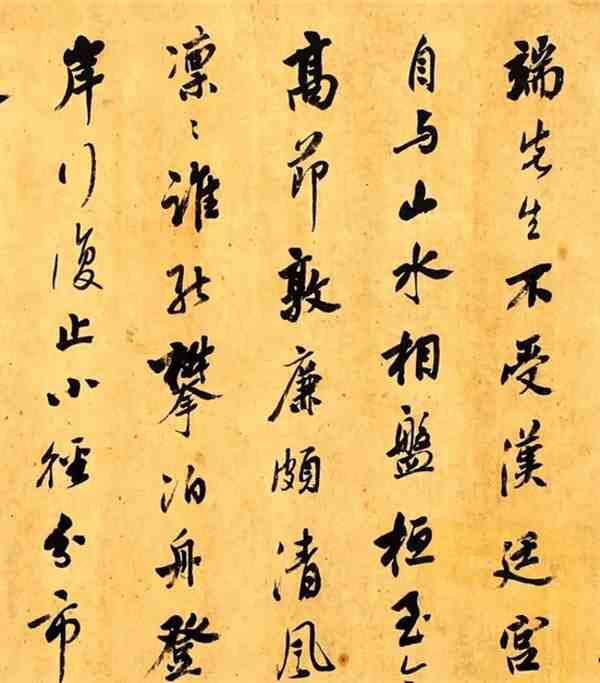 端先生不受漢廷官
自与山水相盤桓至
高節敦廉頗清風
凛〻誰能攀泊舟登
岸行復止小徑分市